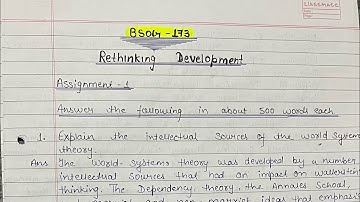 CLASSMATE
BSOG-173
Rethinking Development
Assignment-1
Answer the following in about 500 words each
1. Explain the intellectual sources of the world systems
theory.
Ans The World-Systems theory was developed by a number
intellectual sources that had an impact on wallerstein
thinking. The Dependency theory, the Annales School,
and marxist ideas that emphasis